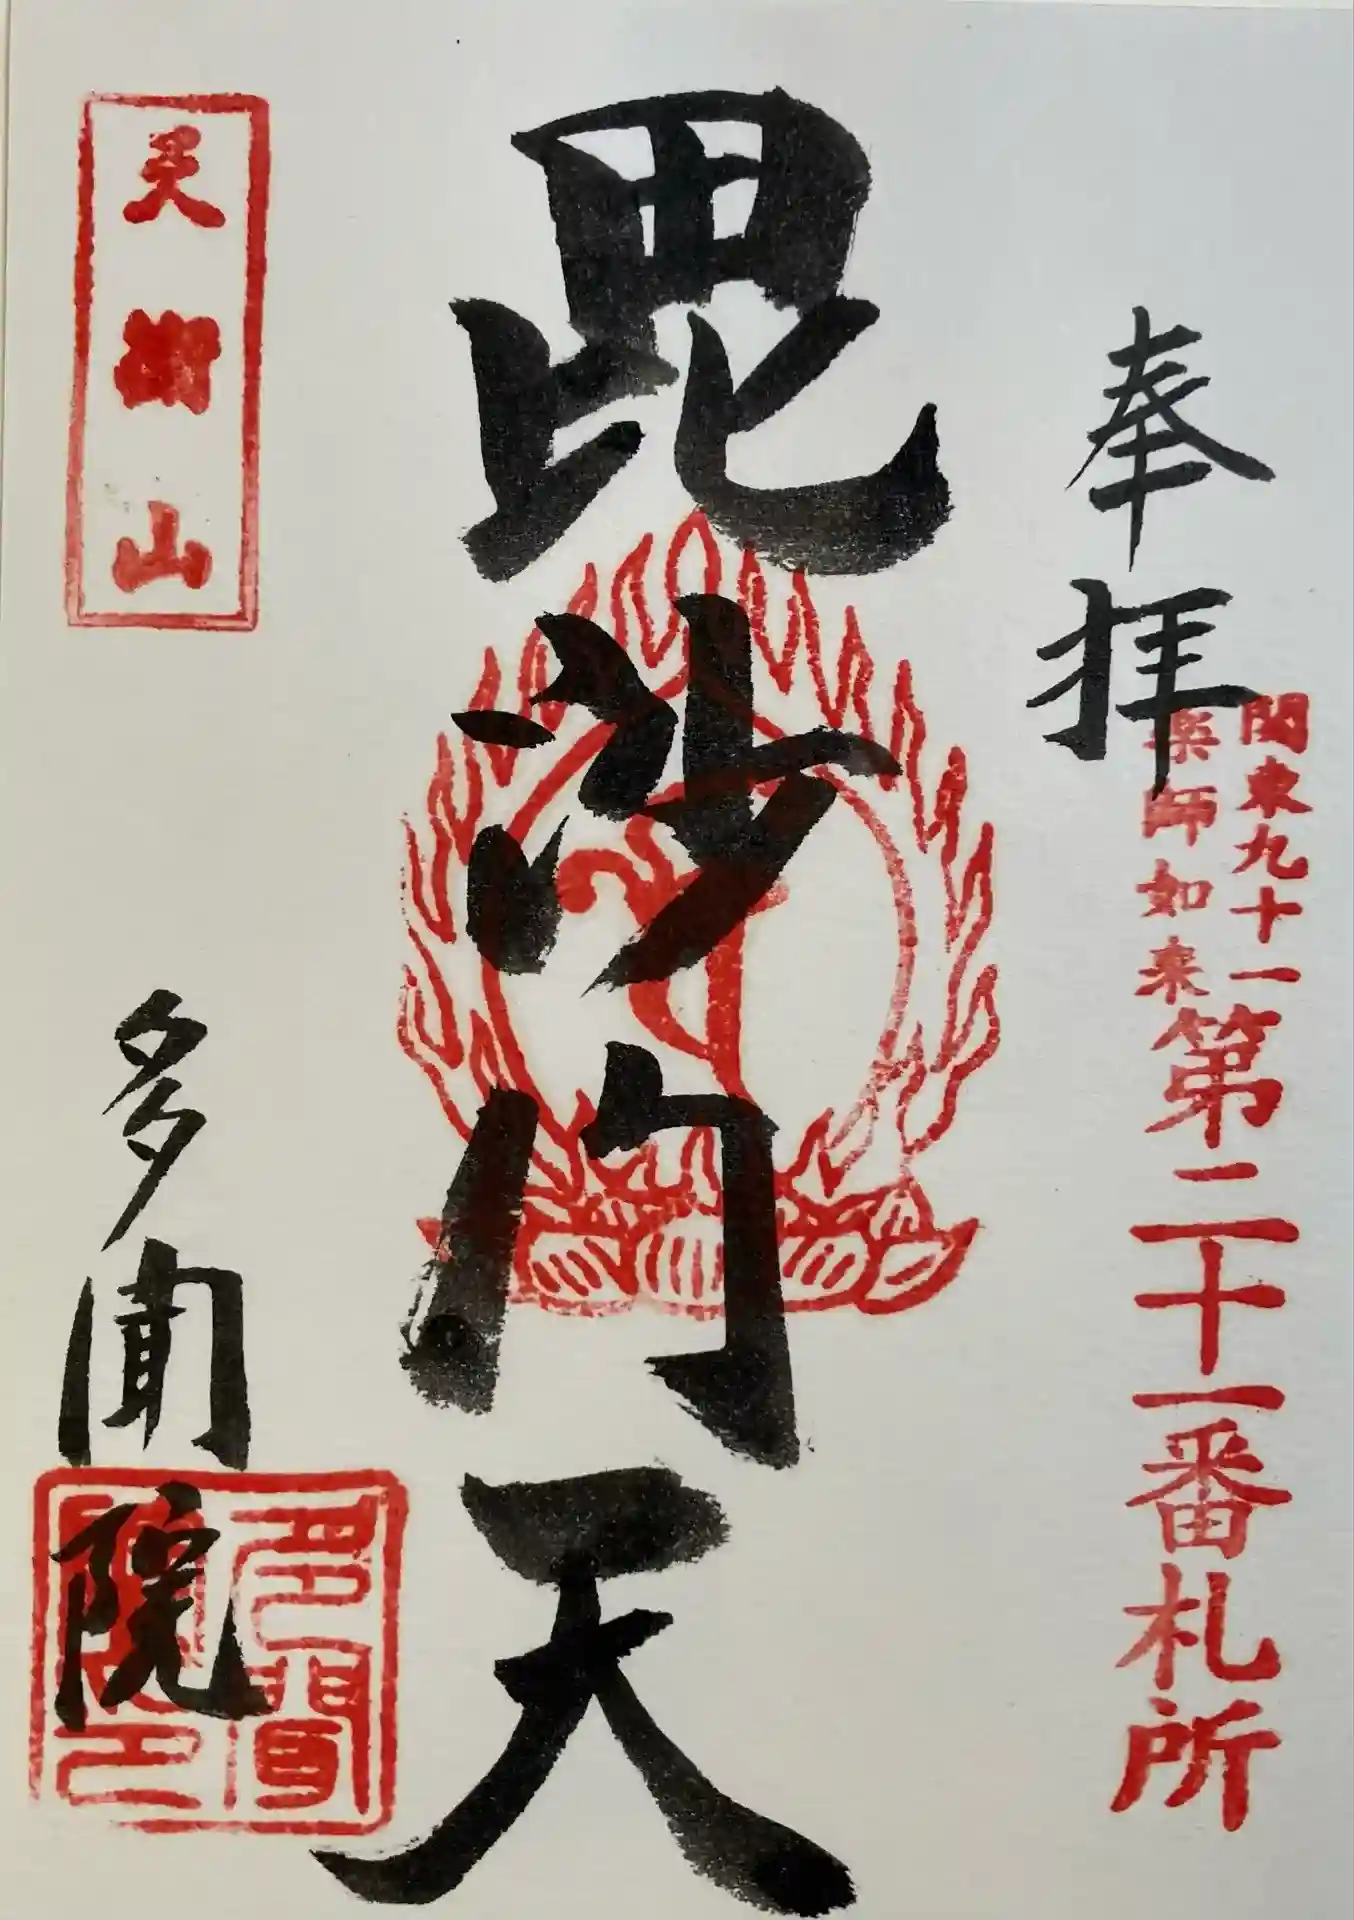 奉拝
関東九十一
薬師如来
第二十一番札所
毘沙門天
山
多聞院
多聞
院印